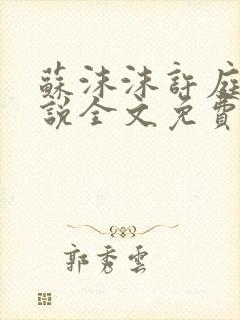 蘇沫沫許庭
說全文免費
郭秀雲